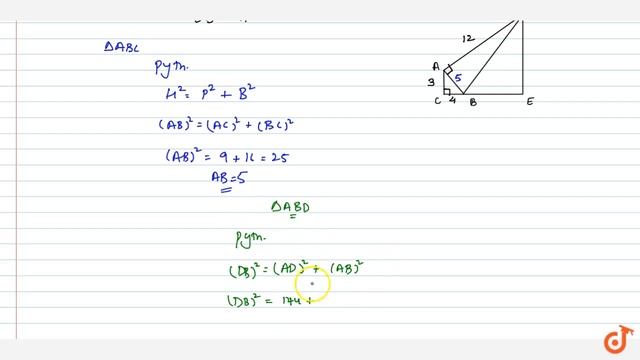 12
ΔABC
A
Pyth.
3
5
H² = P² + B²
C
4
B
E
(AB)² = (AC)² + (BC)²
(AB)² = 9 + 16 = 25
AB = 5
ΔABD
Pyth.
(DB)² = (AD)² + (AB)²
(DB)² = 144 +
d